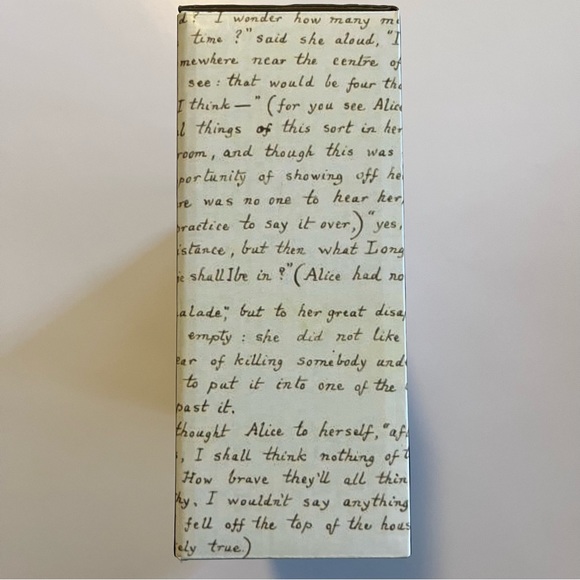 d? "I wonder how many m
time?" said she aloud, "I
mewhere near the centre of
see: that would be four tho
I think—" (for you see Alic
l things of this sort in her
room, and though this was
portunity of showing off he
re was no one to hear her,
ractice to say it over,) "yes,
istance, but then what Long
e shall I be in?" (Alice had no
alade," but to her great disa
empty: she did not like
ear of killing somebody und
to put it into one of the
past it.
thought Alice to herself, "af
, I shall think nothing of t
How brave they'll all thin
hy, I wouldn't say anything
fell off the top of the hous
ely true.)